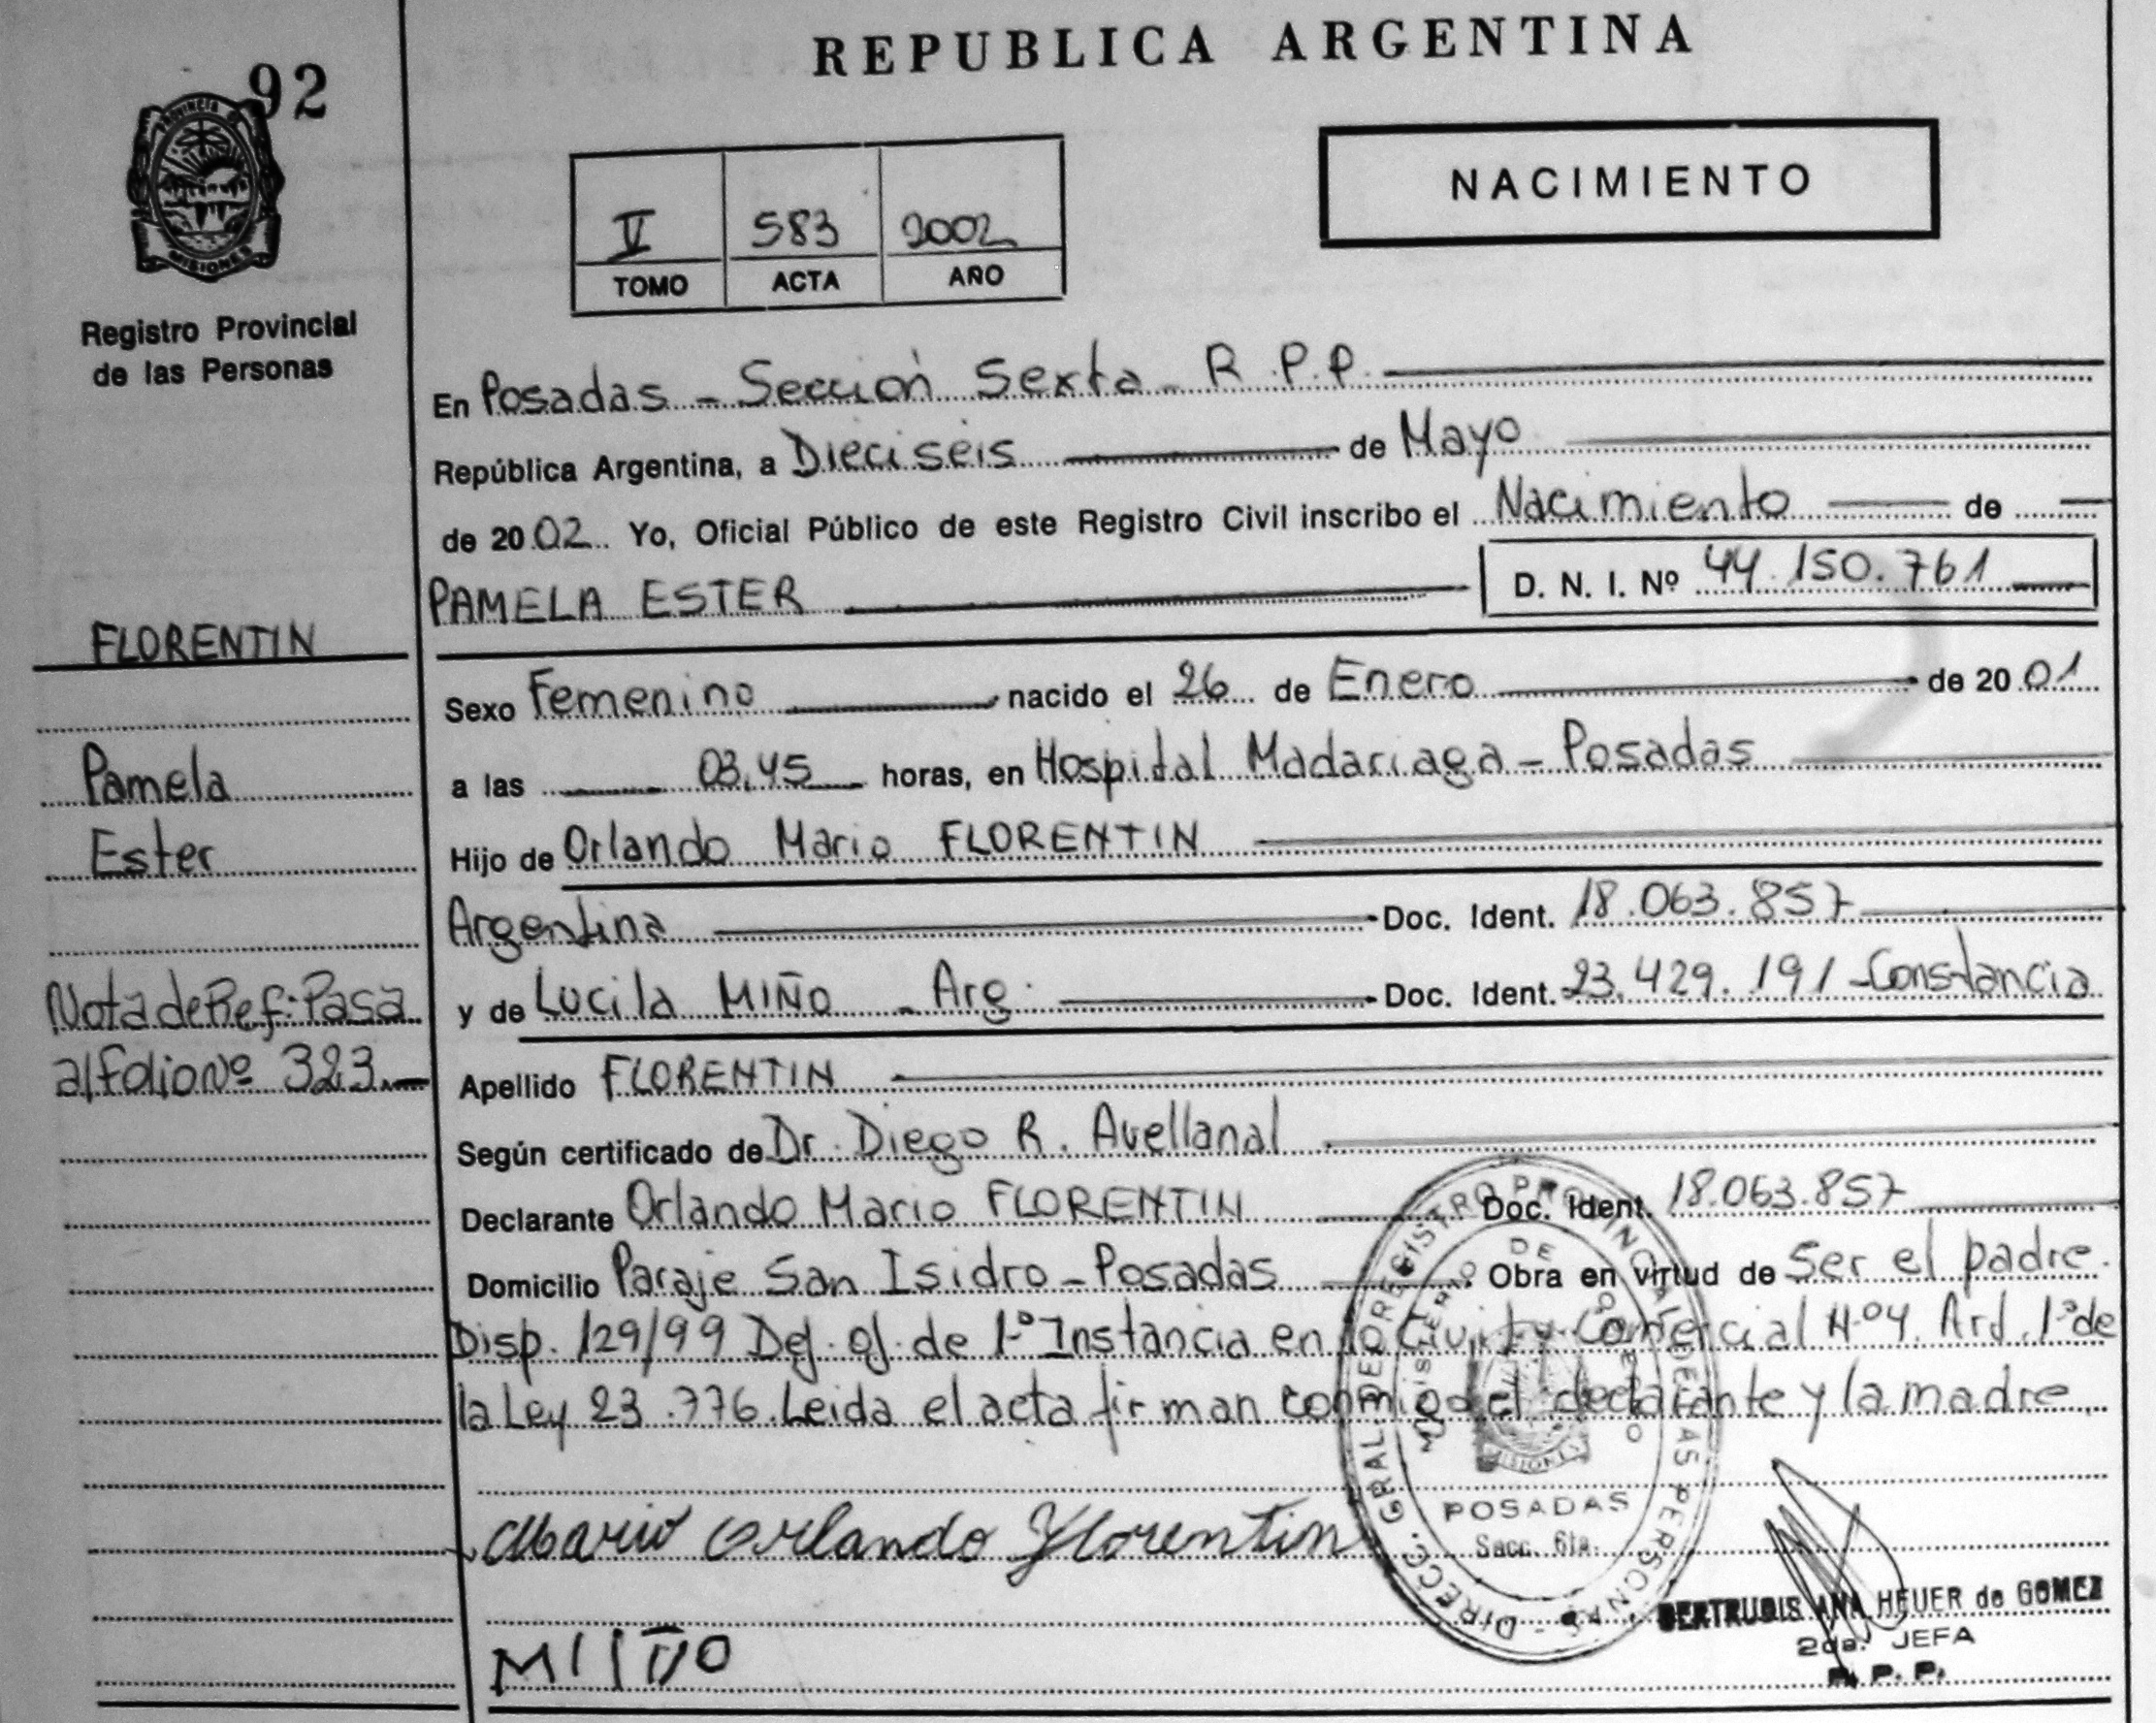 REPUBLICA ARGENTINA
92
PROVINCIA DE
MISIONES
Registro Provincial
de las Personas
NACIMIENTO
V 583 2002
TOMO ACTA AÑO
En Posadas - Sección Sexta - R.P.P.
República Argentina, a Dieciseis de Mayo
de 2002 Yo, Oficial Público de este Registro Civil inscribo el Nacimiento de
PAMELA ESTER D. N. I. Nº 44.150.761
FLORENTIN
Pamela
Ester
Nota de Ref: Pasa
al folio Nº 323.
Sexo Femenino nacido el 26 de Enero de 2001
a las 03.45 horas, en Hospital Madariaga - Posadas
Hijo de Orlando Mario FLORENTIN
Argentina Doc. Ident. 18.063.857
y de Lucila MIÑO - Arg. Doc. Ident. 23.429.191 - Constancia
Apellido FLORENTIN
Según certificado de Dr. Diego R. Avellanal
Declarante Orlando Mario FLORENTIN Doc. Ident. 18.063.857
Domicilio Paraje San Isidro - Posadas. Obra en virtud de Ser el padre.
Disp. 129/99 Def. of. de 1º Instancia en lo Civil y Comercial Nº 4. Art. 1º de
la Ley 23.776. Leida el acta firman conmigo el declarante y la madre.
Mario Orlando Florentin
MIÑO
DIRECC. GRAL. DE REGISTRO PROVINCIAL DE LAS PERSONAS
MINISTERIO DE GOBIERNO
MISIONES
POSADAS
Secc. 6ta.
GERTRUDIS ANA HEUER de GOMEZ
2da. JEFA
R. P. P.